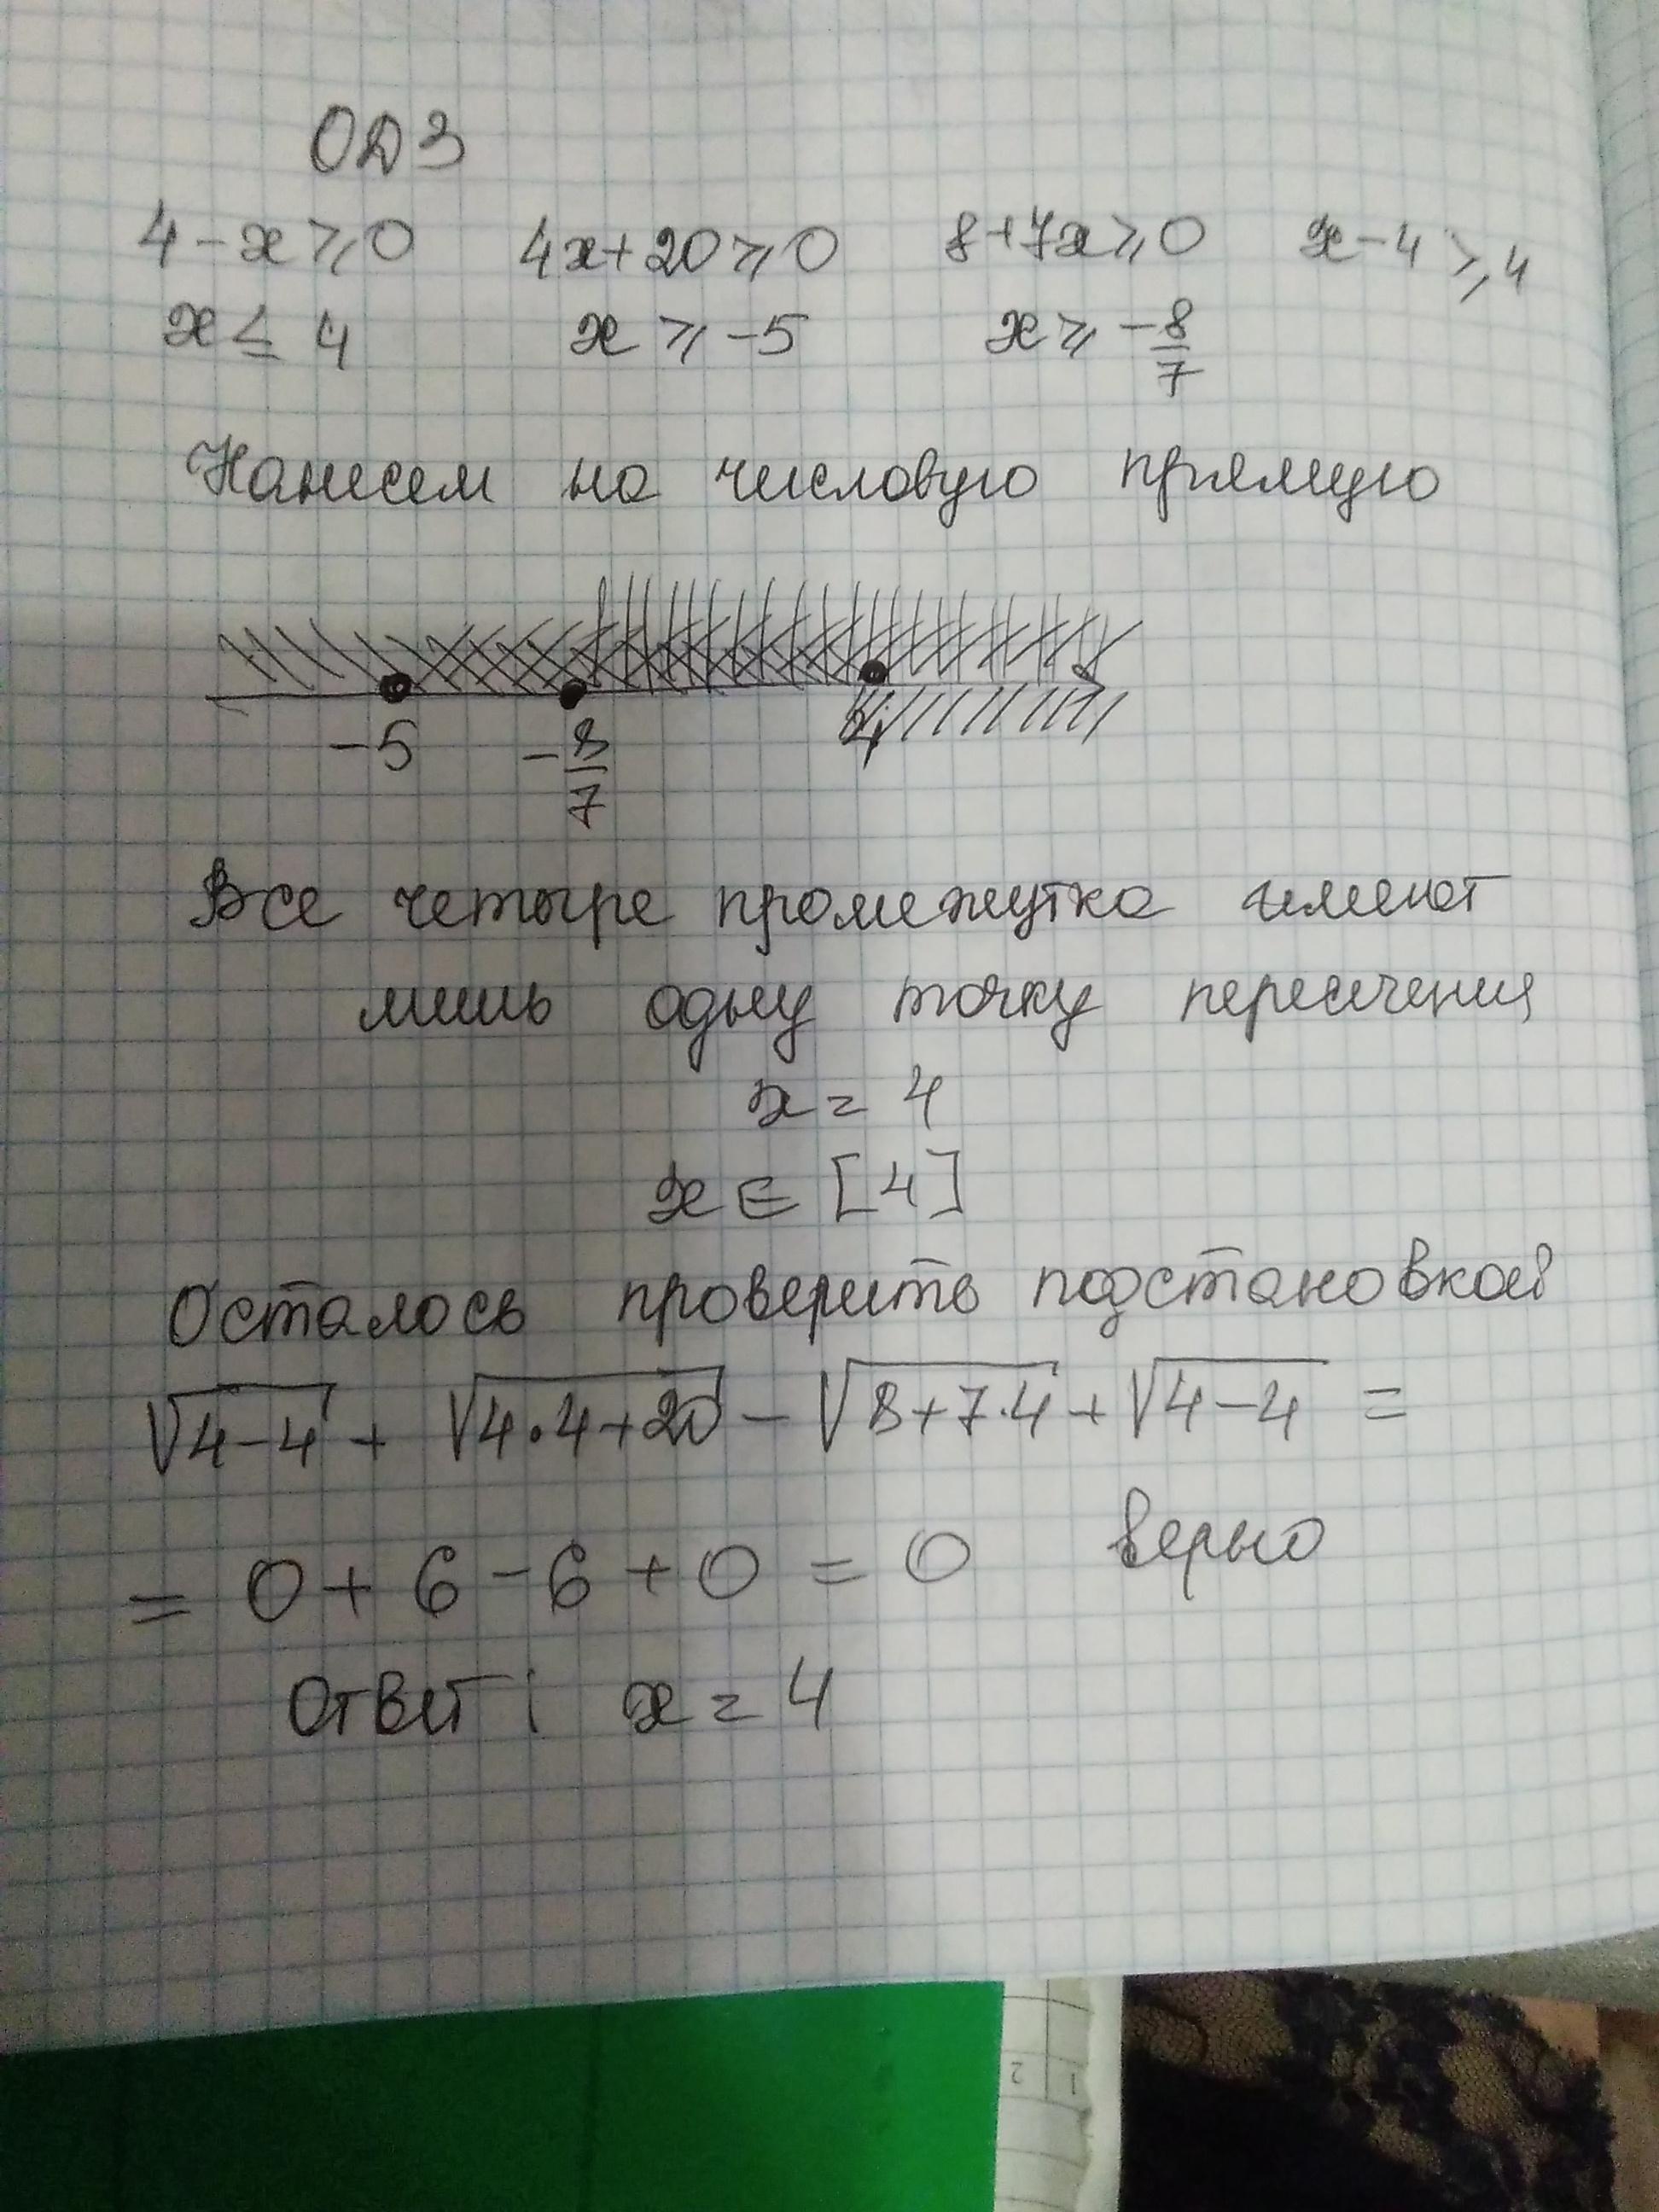 ОДЗ
4-x⩾0 4x+20⩾0 8+7x⩾0 x-4⩾4
x≤4 x⩾-5 x⩾-8/7
Нанесем на числовую прямую
-5 -8/7 4
Все четыре промежутка имеют
лишь одну точку пересечения
x=4
x∈[4]
Осталось проверить подстановкой
√4-4 + √4·4+20 - √8+7·4 + √4-4 =
= 0+6-6+0=0 верно
Ответ: x=4
2 1